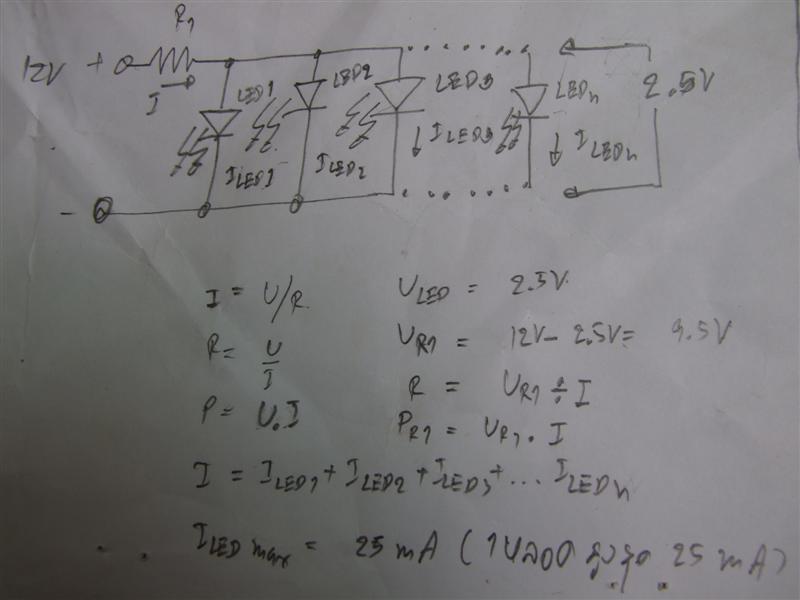 R1
12V + I LED1 LED2 LED3 LEDn 2.5V
ILED1 ILED2 ILED3 ILEDn
-
I = U/R ULED = 2.5V
R = U/I UR1 = 12V - 2.5V = 9.5V
R = UR1 ÷ I
P = U.I PR1 = UR1 . I
I = ILED1 + ILED2 + ILED3 + ... ILEDn
ILED max = 25 mA (1หลอด สูงสุด 25 mA)